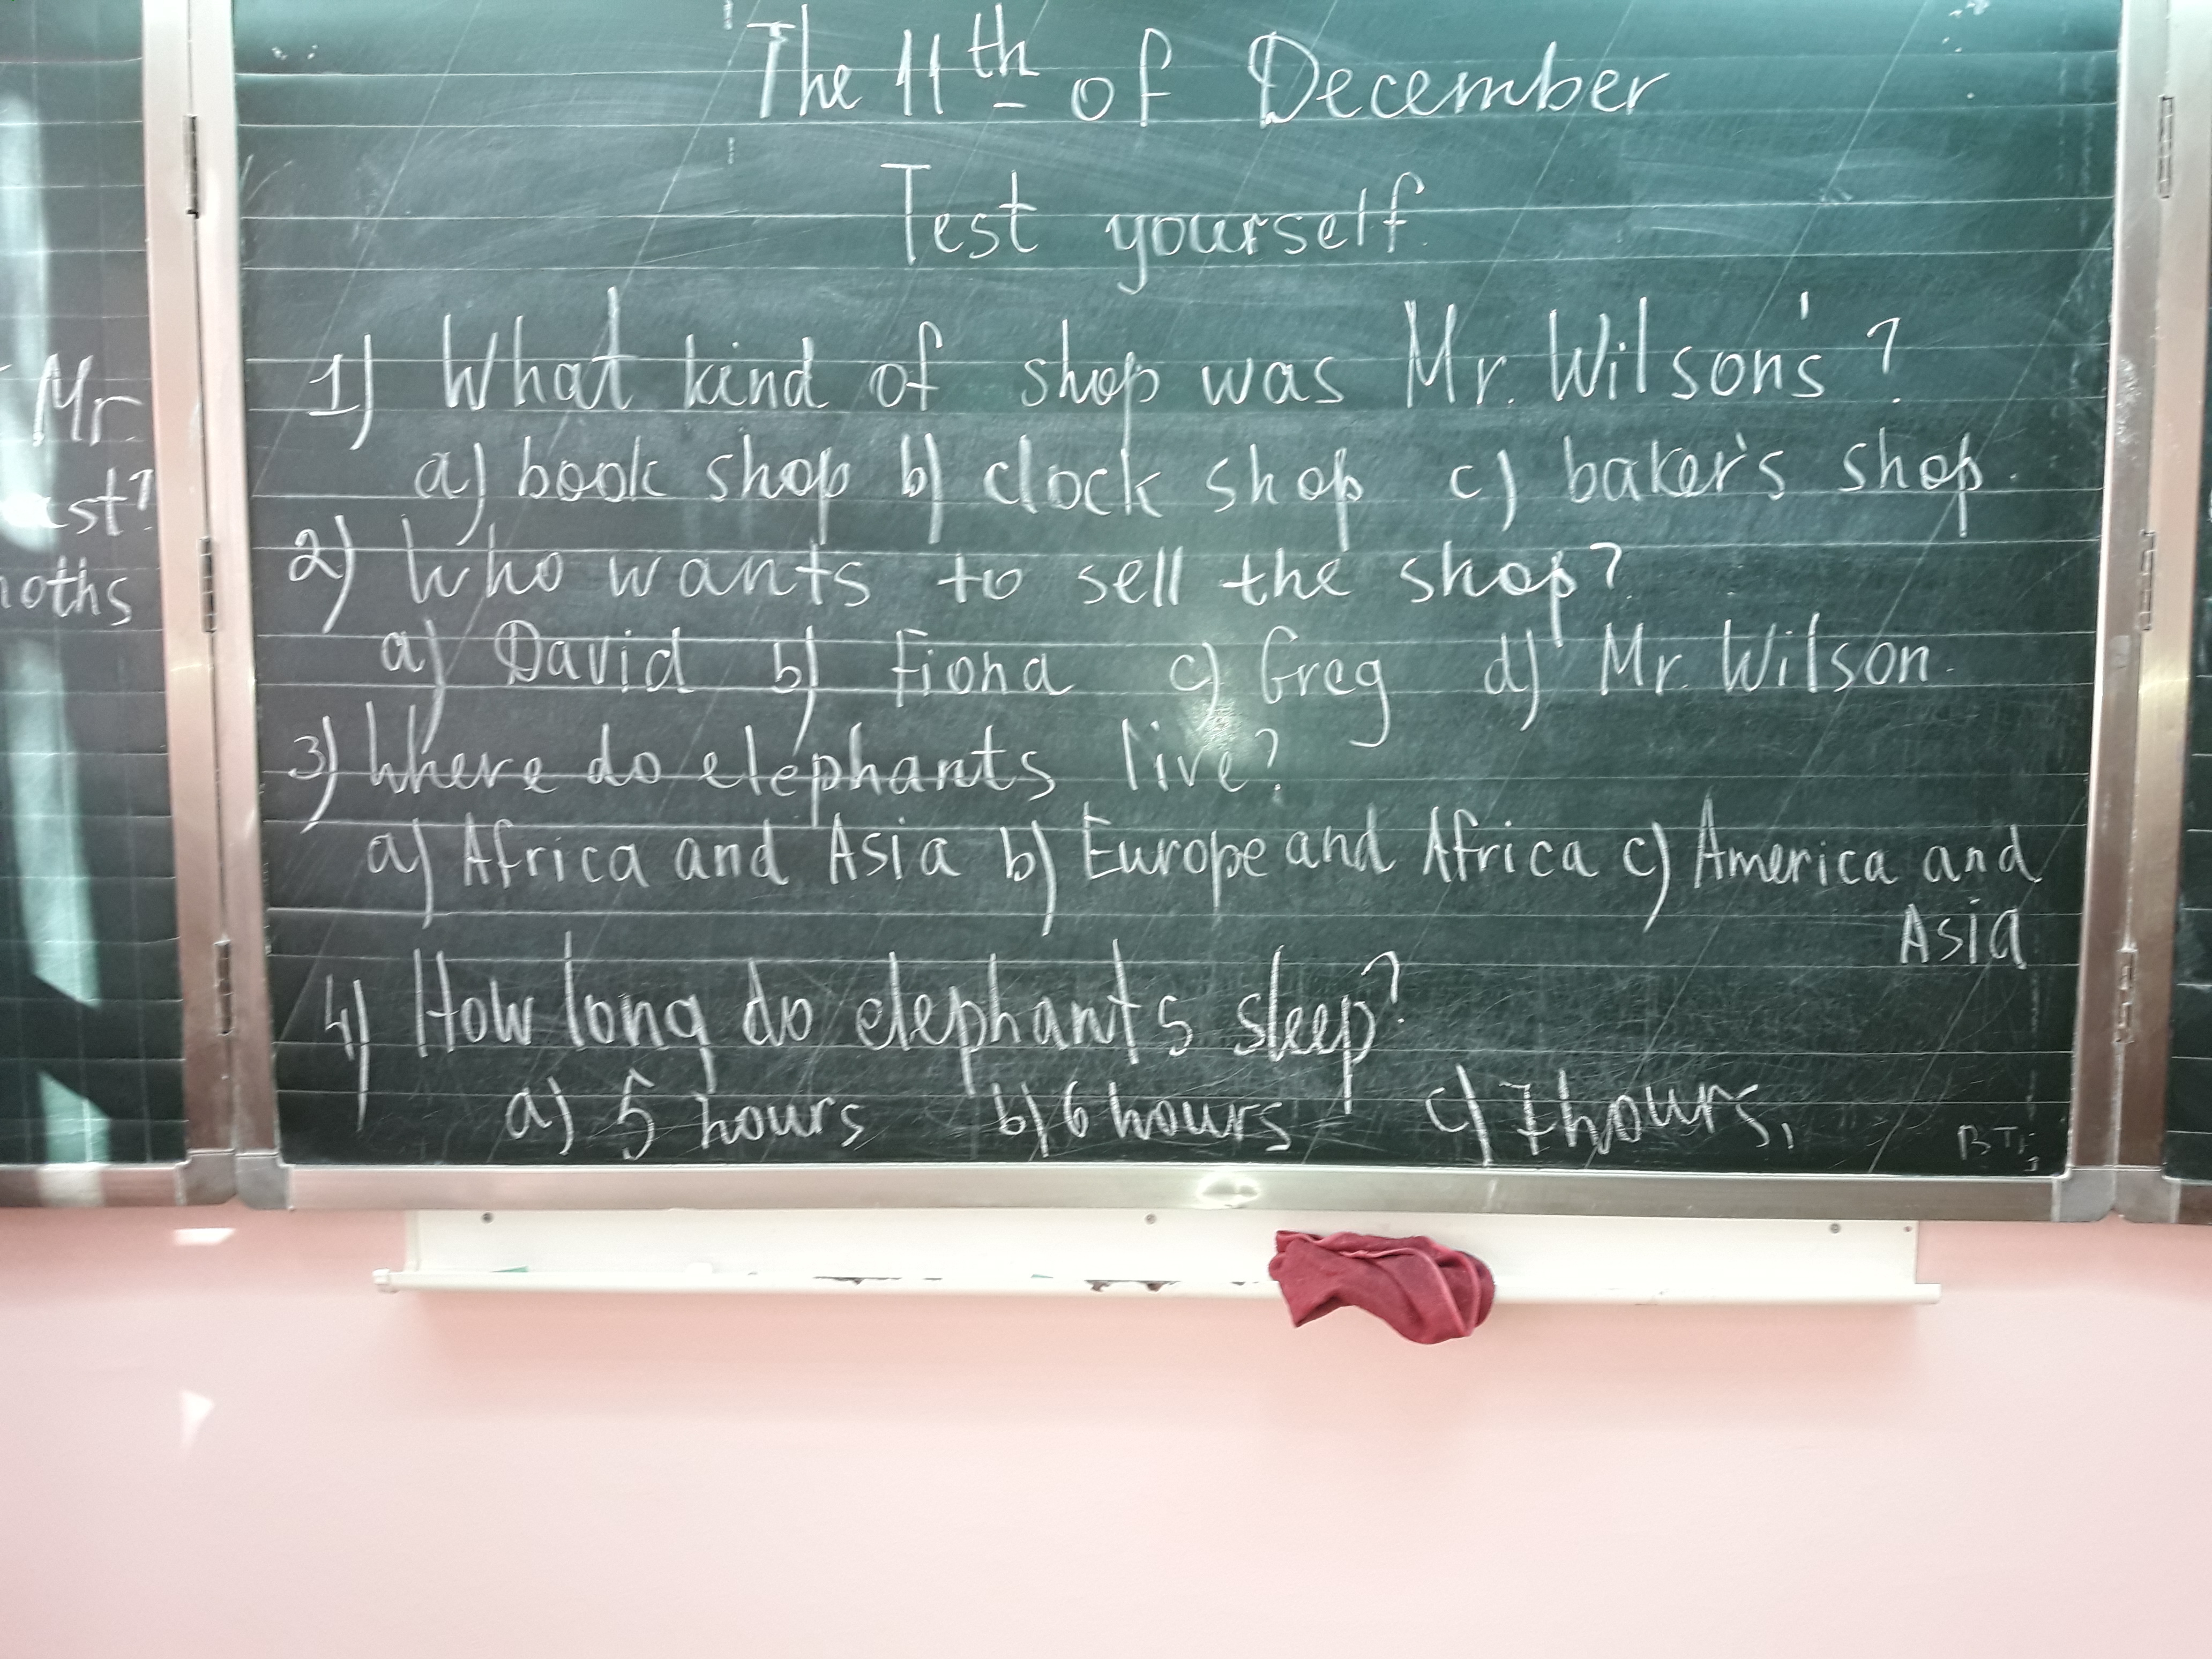 The 11th of December
Test yourself.
1) What kind of shop was Mr. Wilson's?
a) book shop b) clock shop c) baker's shop.
2) Who wants to sell the shop?
a) David b) Fiona c) Greg d) Mr. Wilson.
3) Where do elephants live?
a) Africa and Asia b) Europe and Africa c) America and
Asia
4) How long do elephants sleep?
a) 5 hours b) 6 hours c) 7 hours.
Mr.